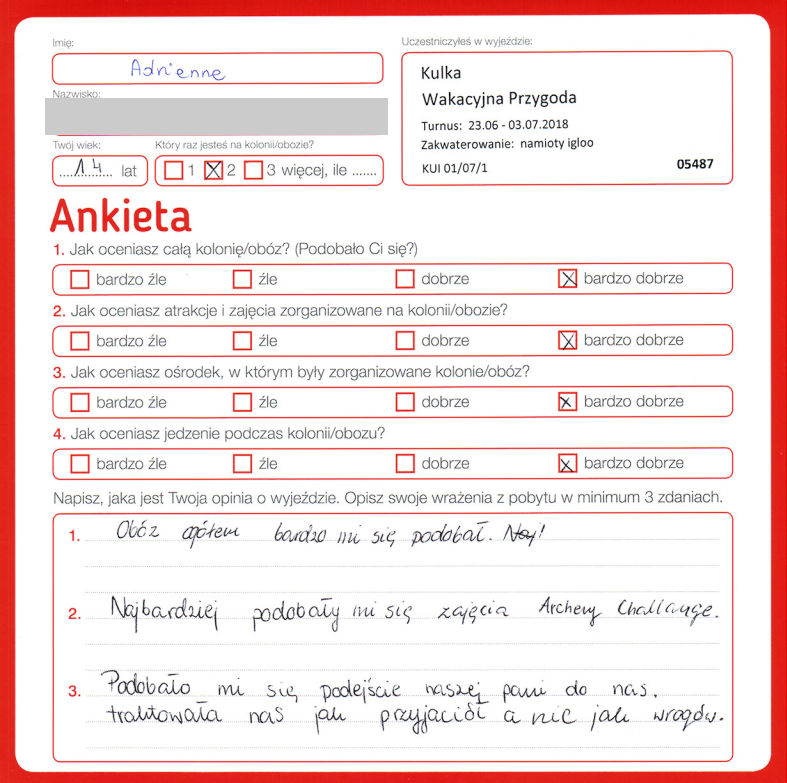 Imię:
Adrienne
Nazwisko:
Twój wiek:
14 lat
Który raz jesteś na kolonii/obozie?
1 2 3 więcej, ile .......
Uczestniczyłeś w wyjeździe:
Kulka
Wakacyjna Przygoda
Turnus: 23.06 - 03.07.2018
Zakwaterowanie: namioty igloo
KUI 01/07/1 05487
Ankieta
1. Jak oceniasz całą kolonię/obóz? (Podobało Ci się?)
bardzo źle źle dobrze bardzo dobrze
2. Jak oceniasz atrakcje i zajęcia zorganizowane na kolonii/obozie?
bardzo źle źle dobrze bardzo dobrze
3. Jak oceniasz ośrodek, w którym były zorganizowane kolonie/obóz?
bardzo źle źle dobrze bardzo dobrze
4. Jak oceniasz jedzenie podczas kolonii/obozu?
bardzo źle źle dobrze bardzo dobrze
Napisz, jaka jest Twoja opinia o wyjeździe. Opisz swoje wrażenia z pobytu w minimum 3 zdaniach.
1. Obóz ogółem bardzo mi się podobał.
2. Najbardziej podobały mi się zajęcia Archery Challange.
3. Podobało mi się podejście naszej pani do nas.
traktowała nas jak przyjaciół a nic jak wrogów.